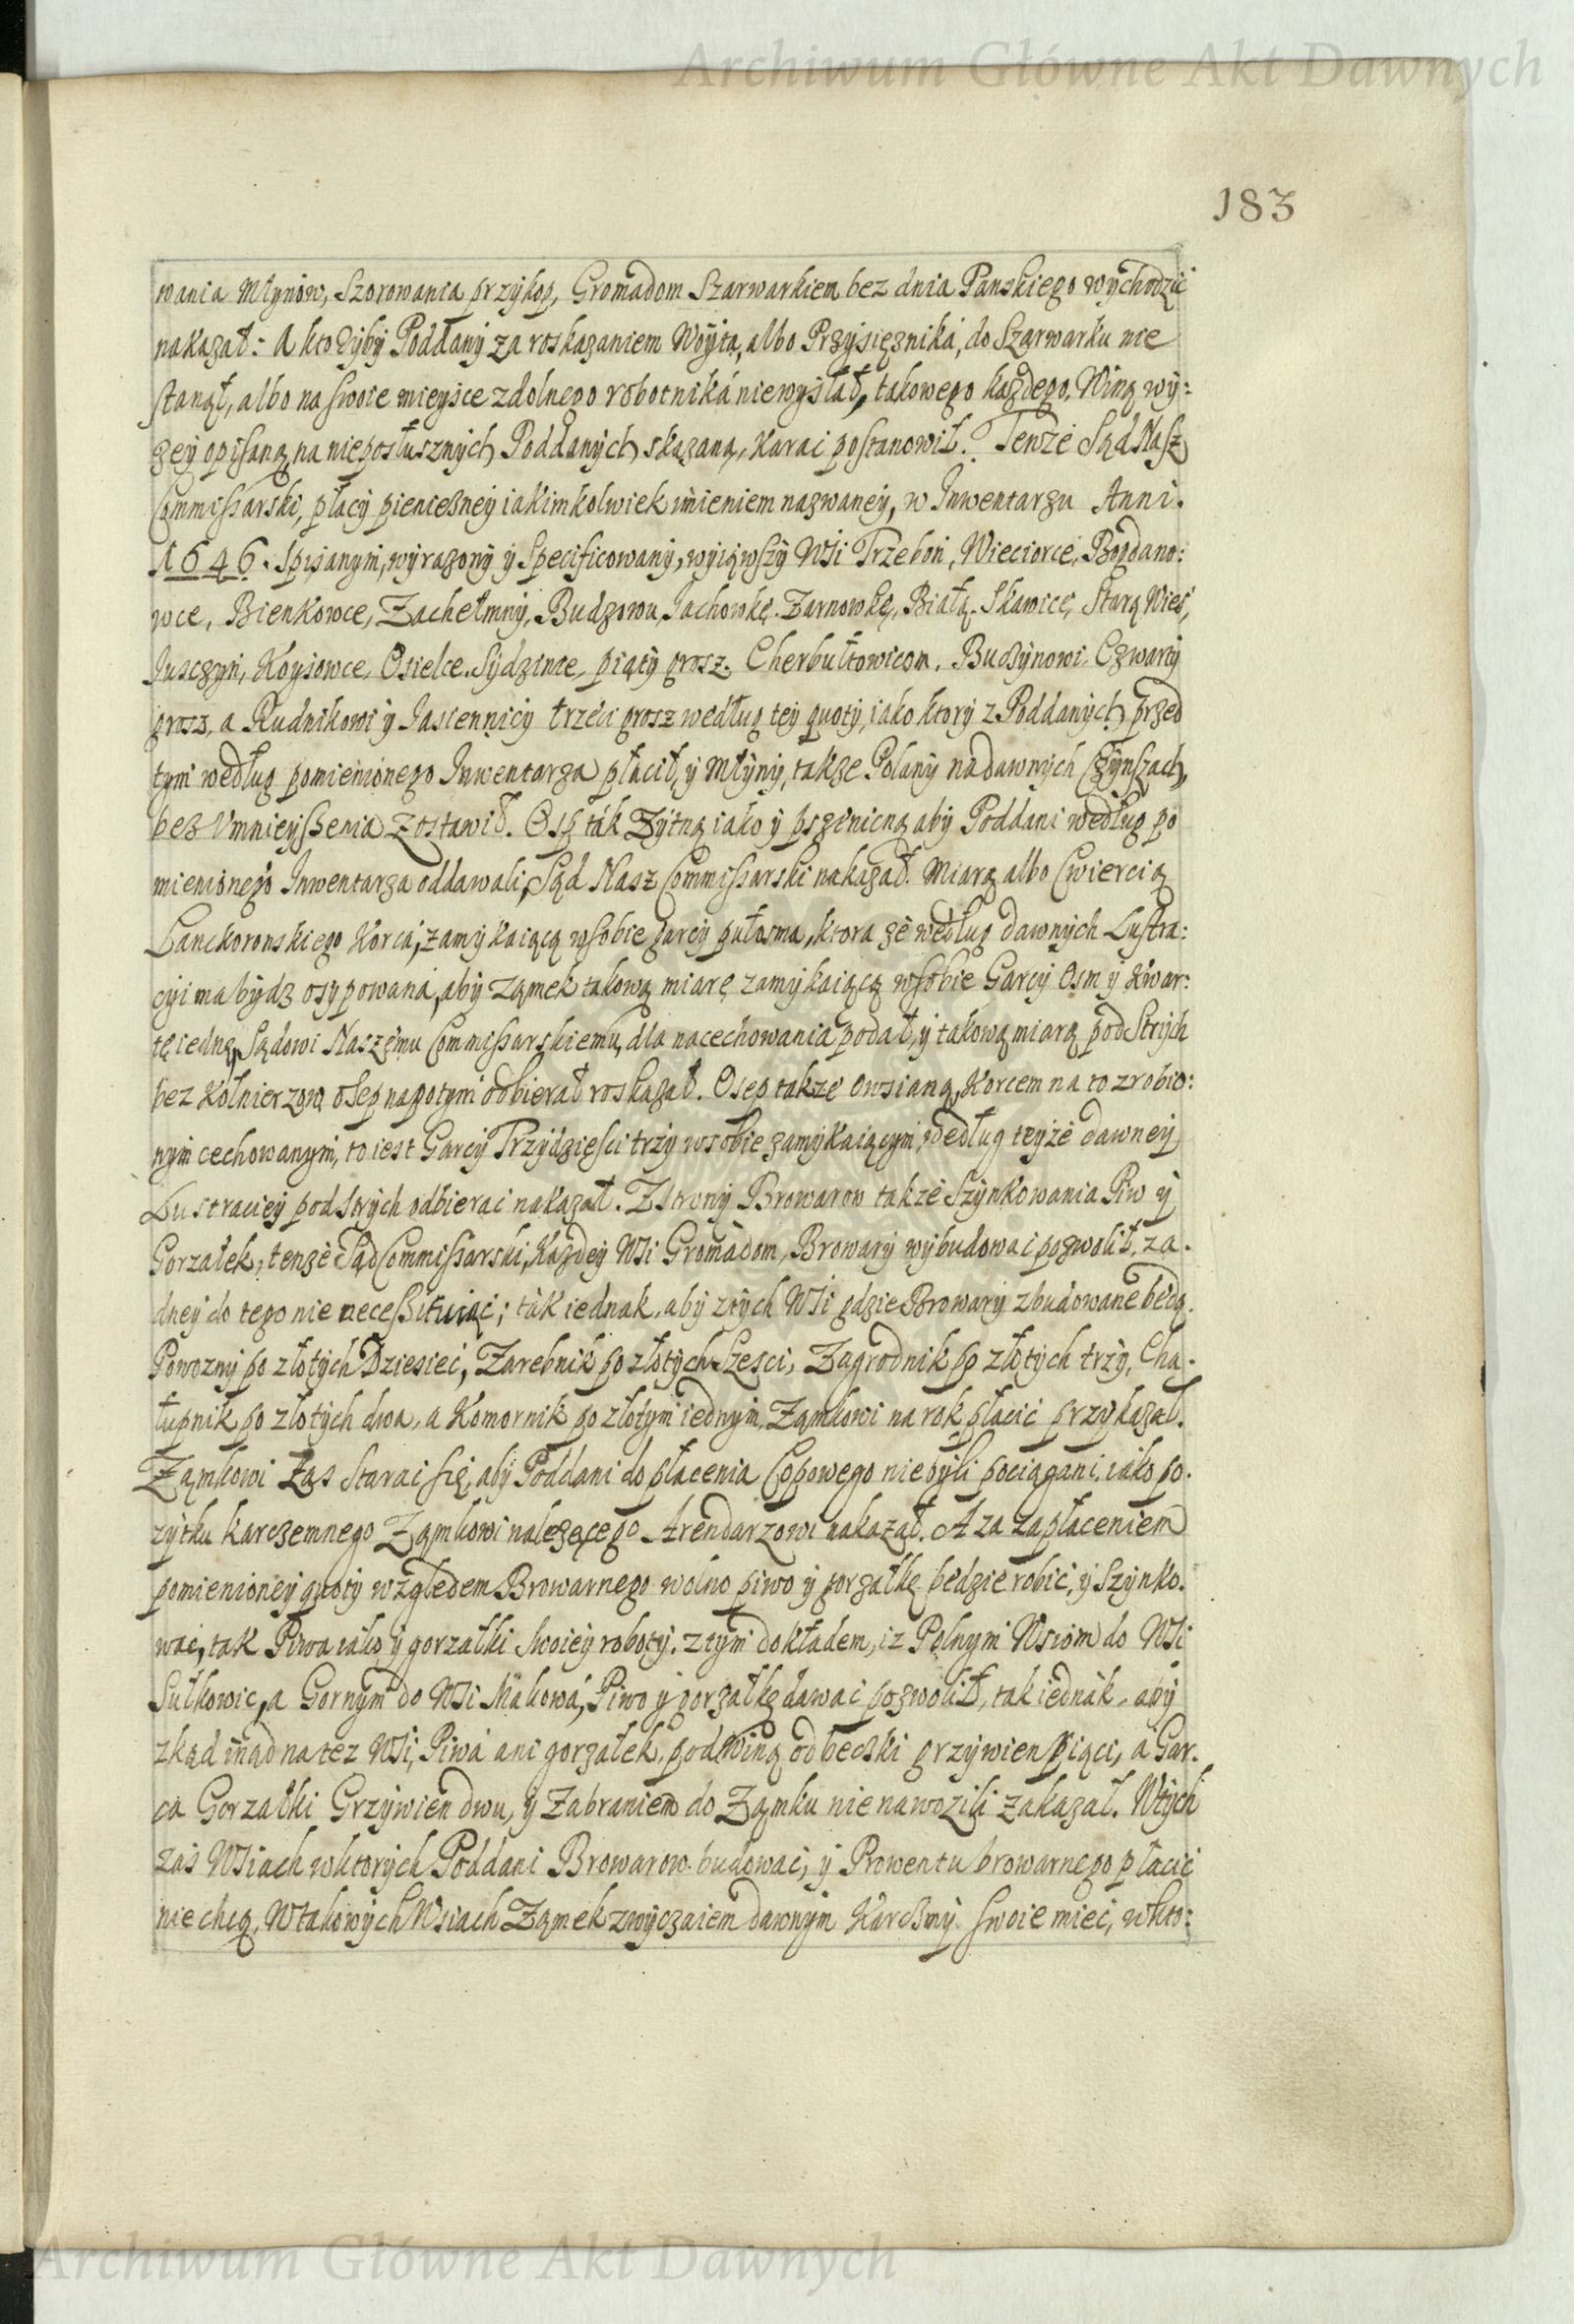 Archiwum Główne Akt Dawnych
183
wania Młynow, Szorowania przykop, Gromadom Szarwarkiem bez dnia Panskiego wychodzić
nakazał: A ktoryby Poddany za roskazaniem Woyta, albo Przysiężnika, do Szarwarku nie
stanął, albo na swoie mieysce zdolnego robotnika niewysłał, takowego każdego, Winą wy:
zey opisaną, na nieposłusznych Poddanych skazaną, karac postanowił. Tenze Sąd Nasz
Commissarski, płacy pienieżney iakimkolwiek imieniem nazwaney, w Inwentarzu Anni.
1646. Spisanym, wyrazony y Specificowany, wyiąwszy Wsi Trzeboń, Wieciorce, Bogdano:
wce, Bienkowce, Zachełmny, Budzowu, Jachowkę, Zarnowkę, Białą, Skawicę, Starą Wieś,
Juszczyn, Koysowce, Osielce, Sydzinie, piąty grosz. Cherbułtowicom, Budzynowi, Czwarty
grosz, a Rudnikowi y Jasiennicy trzeci grosz według tey quoty, iako ktory z Poddanych przed
tym według pomienionego Inwentarza płacił, y Młyny, także Polany na dawnych Czynszach,
bez Vmnieyszenia zostawił. Osp ták Zytną iako y pszenicną aby Poddani według po
mienionego Inwentarza oddawali, Sąd Nasz Commissarski nakazał. Miarą albo Cwiercią
Lanckoronskiego Korca, zamykaiącą wsobie garcy pułosma, ktora że według dawnych Lustra:
cyi ma bydz osypowana, aby Zamek takową miarę zamykaiącą wsobie Garcy Osm y kwar:
tę iedną, Sądowi Naszemu Commissarskiemu, dla nacechowania podał, y takową miarą pod Strych
bez Kołnierzow, osep napotym odbierał roskazał. Osep także owsianą, Korcem na to zrobio:
nym cechowanym, to iest Garcy Trzydziesci trzy wsobie zamykaiącym, według teyże dawney
Lustraciey pod Strych odbierac nakazał. Z Strony Browarow takze Szynkowania Piw y
Gorzałek, tenże Sąd Commissarski, Kazdey Wsi Gromadom, Browary wybudowac pozwolił, za.
dney do tego nie necessituiąc; ták iednak, aby ztych Wsi gdzie Browary zbudowane będą.
Powozny po złotych Dziesieć, Zarebnik po złotych Szesci, Zagrodnik po złotych trzy, Cha.
łupnik po złotych dwa, a Komornik po złotym iednym, Zamkowi na rok płacić przykazał.
Zamkowi zas Starac się, aby Poddani do płacenia Czopowego niebyli pociągani, iako po.
zytku karczemnego Zamkowi należącego Arendarzowi nakazał. A za zapłaceniem
pomienioney quoty względem Browarnego wolno piwo y gorzałkę będzie robić, y Szynko.
wać, tak Piwa iako y gorzałki swoiey roboty: z tym dokładem, iz Polnym Wsiom do Wsi
Sułkowic, a Gornym do Wsi Makowá, Piwo y gorzałkę dawac pozwolił, tak iednák, aby
zkąd inąd na tez Wsi, Piwá ani gorzałek, pod winą od beczki grzywien piąci, a Gar.
ca Gorzałki Grzywien dwu, y Zabraniem do Zamku nie nawozili zakazał. Wtych
zaś Wsiach wktorych Poddani Browarow budowac, y Prowentu browarnego płacić
nie chcą, Wtakowych Wsiach Zamek zwyczaiem dawnym Karczmy swoie mieć, wkto:
Archiwum Główne Akt Dawnych